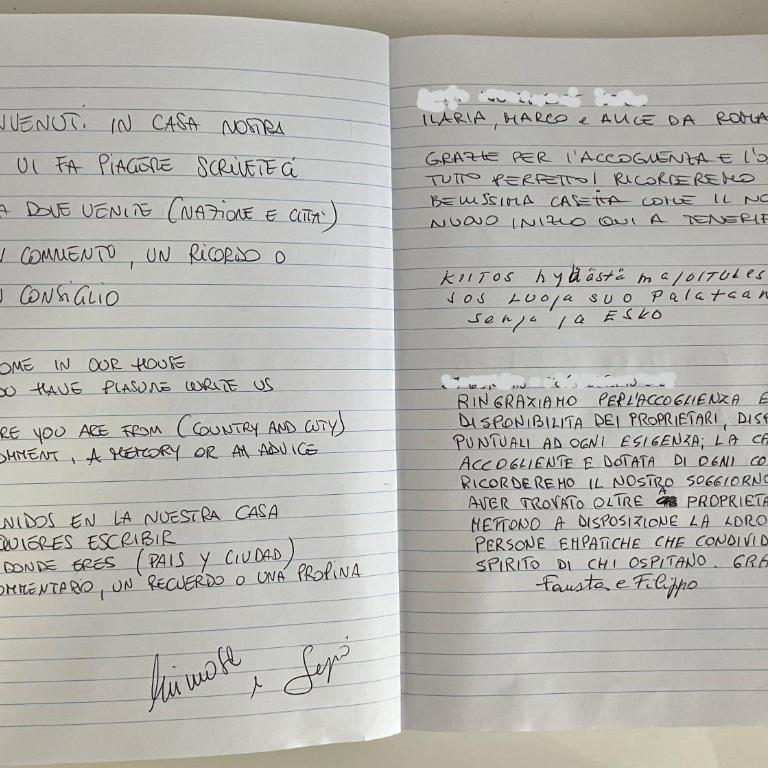 NVENUTI IN CASA NOSTRA
VI FA PIACERE SCRIVETECI
A DOVE VENITE (NAZIONE E CITTÀ)
COMMENTO, UN RICORDO O
CONSIGLIO
OME IN OUR HOUSE
OU HAVE PLASURE WRITE US
RE YOU ARE FROM (COUNTRY AND CUTY)
OMMENT, A MEMORY OR AN ADVICE
NIDOS EN LA NUESTRA CASA
QUIERES ESCRIBIR
DONDE ERES (PAIS Y CIUDAD)
OMMENTARIO, UN RECUERDO O UNA PROPINA
ILARIA, MARCO e ALICE DA ROMA
GRAZIE PER L'ACCOGLIENZA E L'O
TUTTO PERFETTO! RICORDEREMO
BELLISSIMA CASETTA COME IL NO
NUOVO INIZIO QUI A TENERIF
KIITOS hyvästä majoituksesta
SUO Palataan
senja ja ESKO
RINGRAZIAMO PER L'ACCOGLIENZA E
DISPONIBILITÀ DEI PROPRIETARI, DISP
PUNTUALI AD OGNI ESIGENZA; LA CA
ACCOGLIENTE E DOTATA DI OGNI CO
RICORDEREMO IL NOSTRO SOGGIORNO
AVER TROVATO OLTRE A PROPRIETA
METTONO A DISPOSIZIONE LA LORO
PERSONE EMPATICHE CHE CONDIVID
SPIRITO DI CHI OSPITANO. GRA
Fausta e Filippo